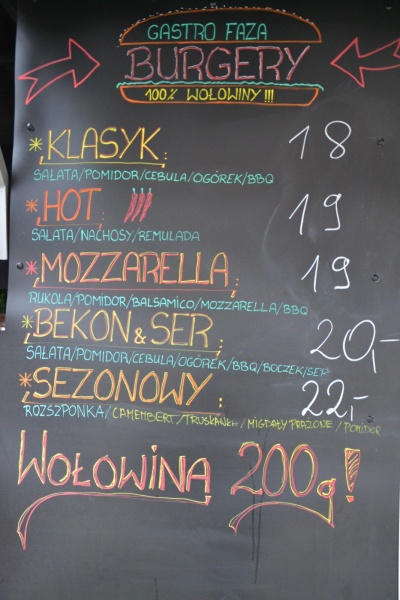 GASTRO FAZA
BURGERY
100% WOŁOWINY !!!
*KLASYK: 18
SAŁATA/POMIDOR/CEBULA/OGÓREK/BBQ
*HOT: 19
SAŁATA/NACHOSY/REMULADA
*MOZZARELLA: 19
RUKOLA/POMIDOR/BALSAMICO/MOZZARELLA/BBQ
*BEKON & SER: 20,-
SAŁATA/POMIDOR/CEBULA/OGÓREK/BBQ/BOCZEK/SER
*SEZONOWY: 22,-
ROZSZPONKA/CAMEMBERT/TRUSKAWKA/MIGDAŁY PRAŻONE/POMIDOR
WOŁOWINA 200g!